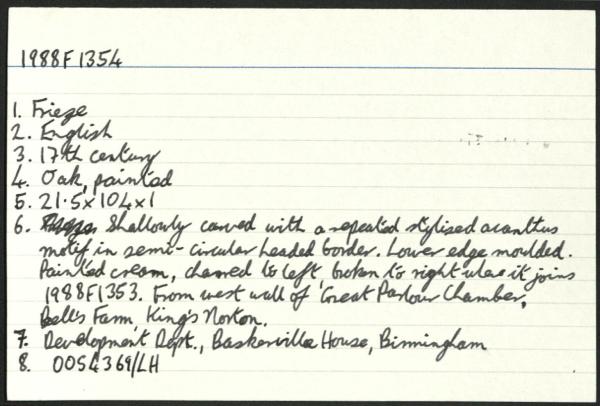 1988F1354
1. Frieze
2. English
3. 17th century
4. Oak, painted
5. 21.5x104x1
6. Shallowly carved with a repeated stylised acanthus
motif in semi-circular headed border. Lower edge moulded.
Painted cream, charred to left, broken to right where it joins
1988F1353. From west wall of 'Great Parlour Chamber,
Bell's Farm, King's Norton.
7. Development Dept., Baskerville House, Birmingham
8. 0054369/LH